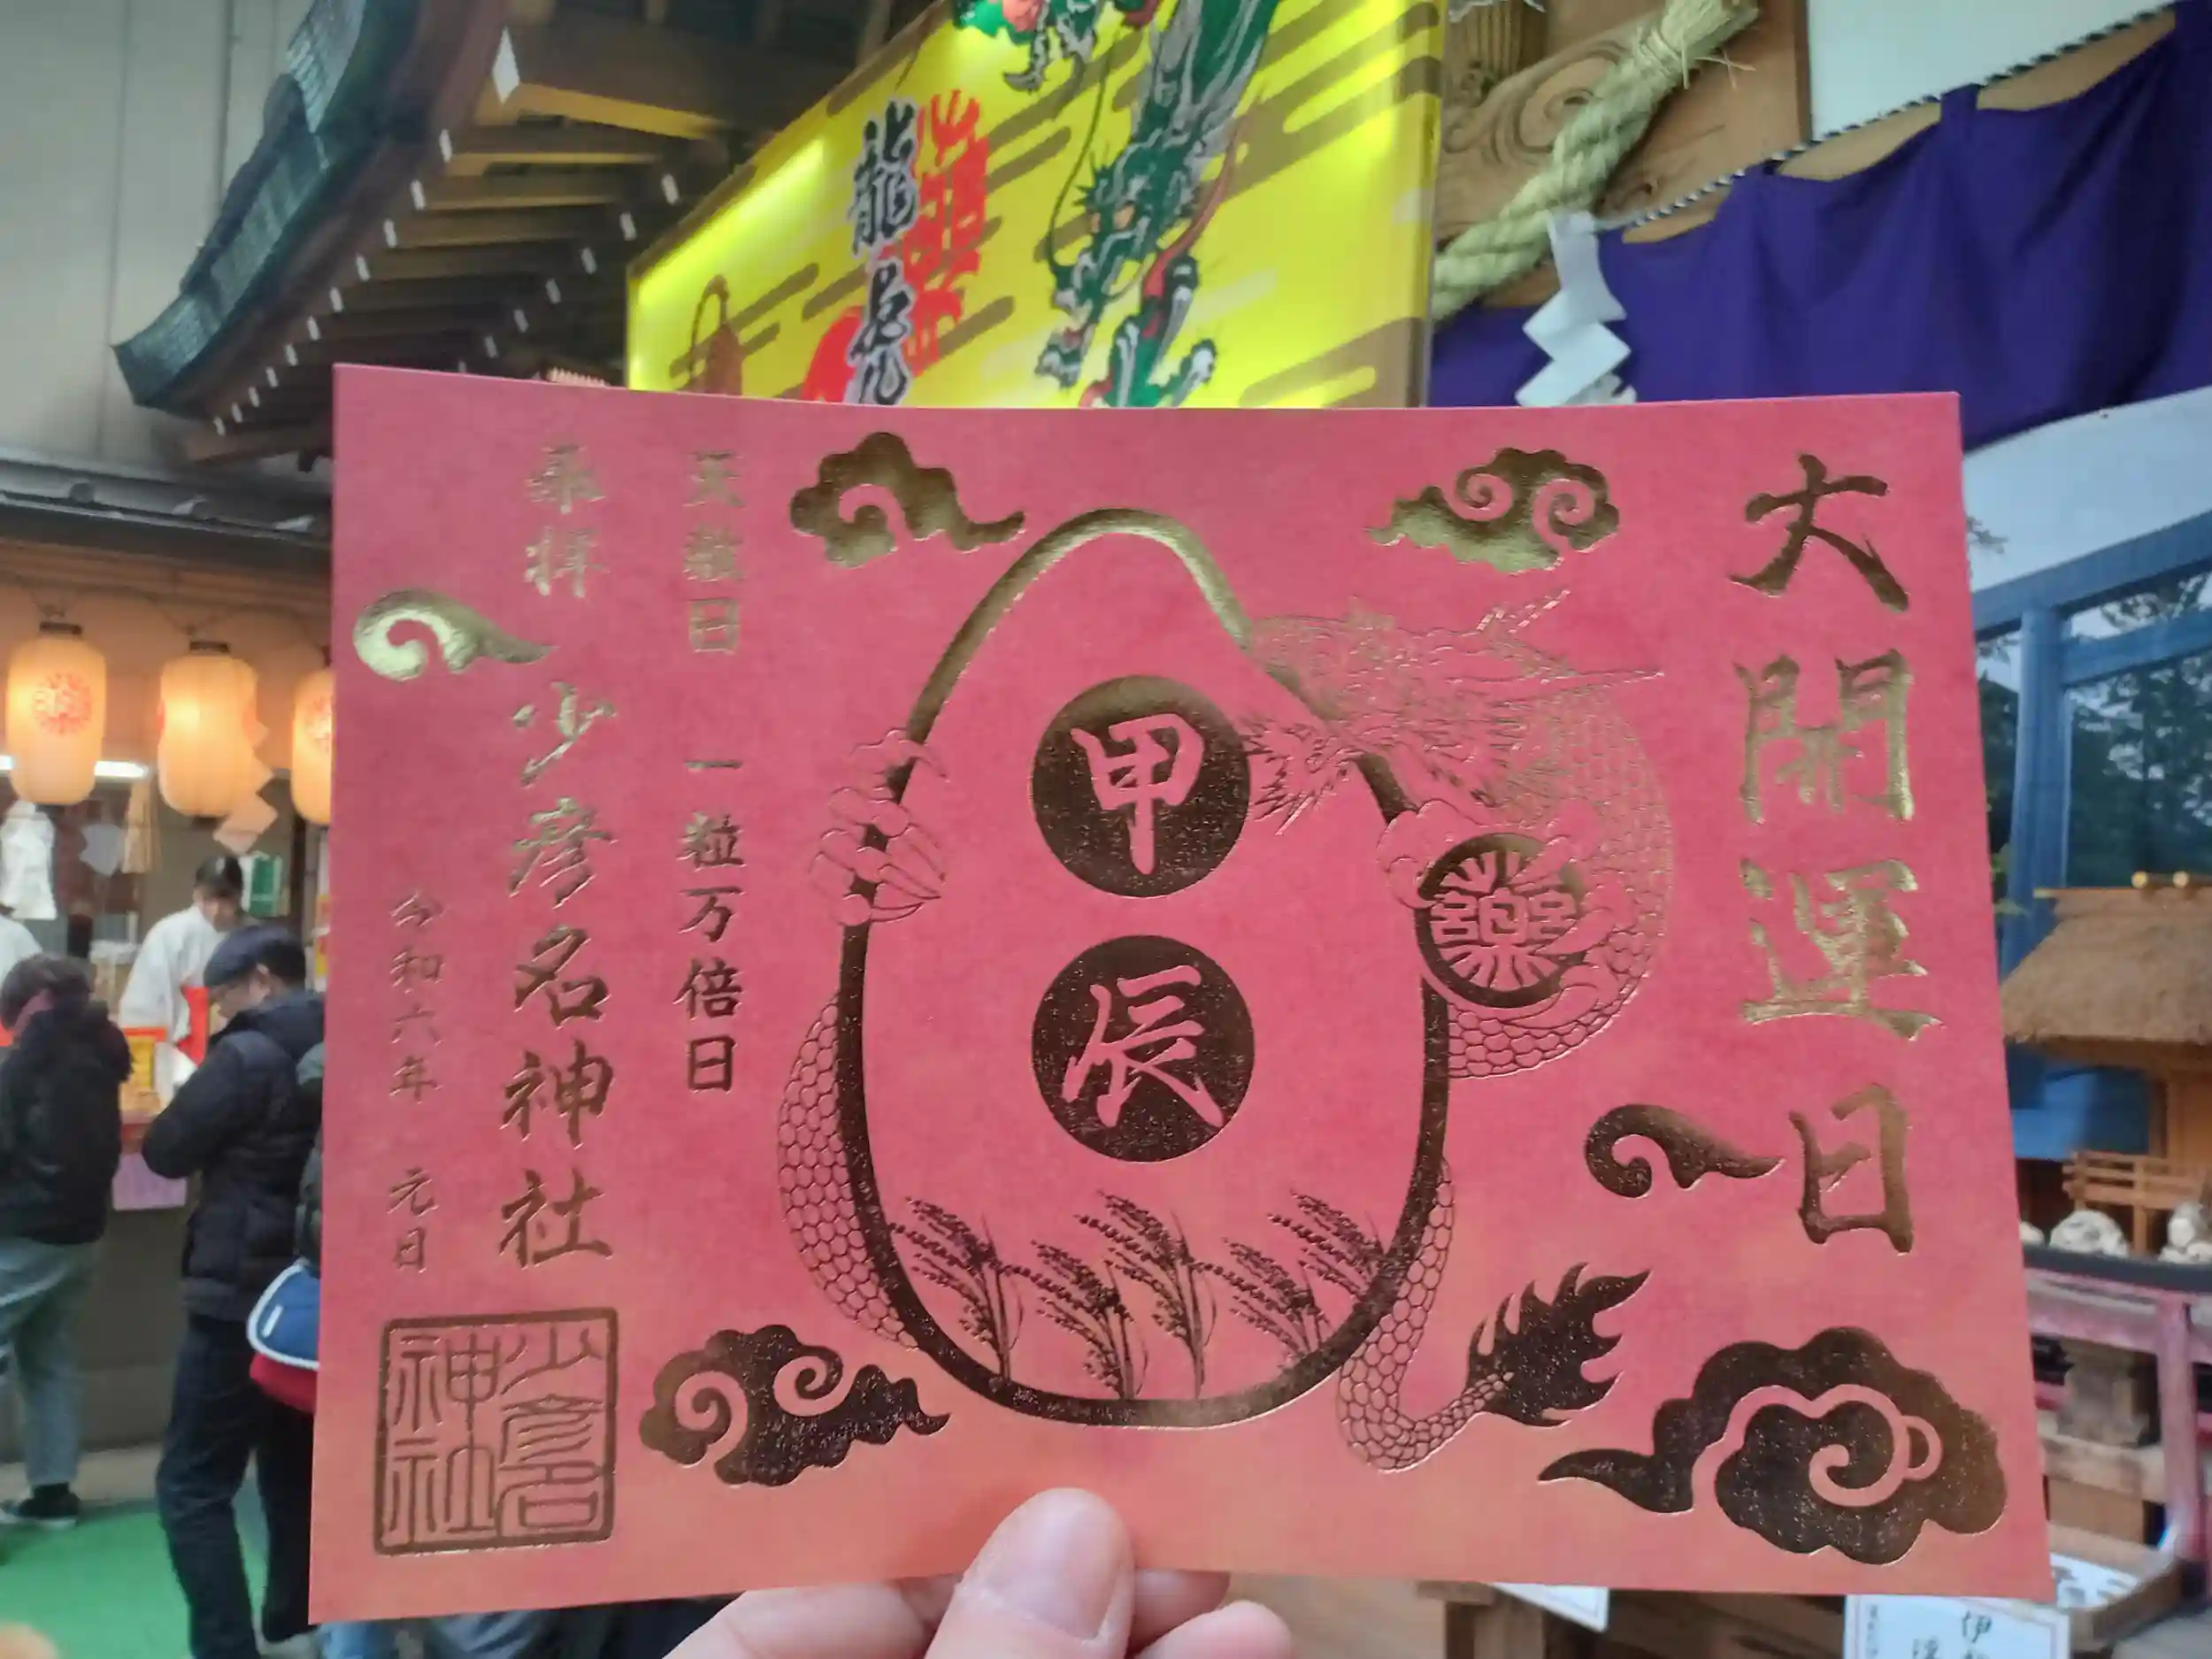 大開運日
甲
辰
樂
天赦日 一粒万倍日
奉拝
少彦名神社
令和六年 元日
少彦名
神社
龍